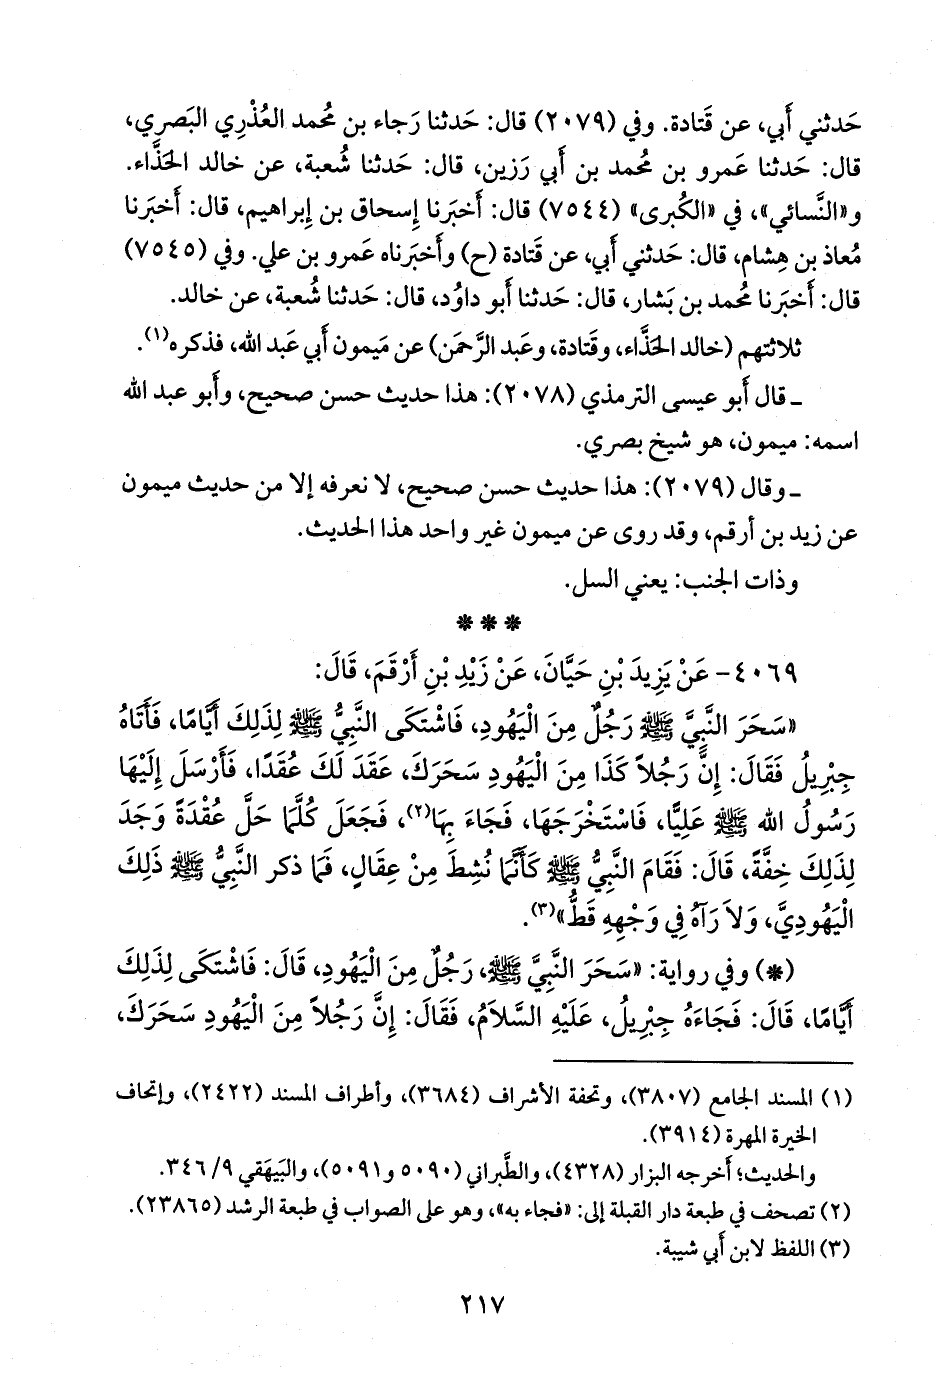 حَدثني أَبي، عن قَتادة. وفي (٢٠٧٩) قال: حَدثنا رَجاء بن مُحمد العُذْري البَصري،
قال: حَدثنا عَمرو بن مُحمد بن أَبي رَزين، قال: حَدثنا شُعبة، عن خالد الحَذَّاء.
و«النَّسائي»، في «الكُبرى» (٧٥٤٤) قال: أَخبَرنا إِسحاق بن إِبراهيم، قال: أَخبَرنا
مُعاذ بن هِشام، قال: حَدثني أَبي، عن قَتادة (ح) وأَخبَرناه عَمرو بن علي. وفي (٧٥٤٥)
قال: أَخبَرنا مُحمد بن بَشار، قال: حَدثنا أَبو داوُد، قال: حَدثنا شُعبة، عن خالد.
ثلاثتهم (خالد الحَذَّاء، وقَتادة، وعَبد الرَّحمَن) عن مَيمون أَبي عَبد الله، فذكره(١).
ـ قال أَبو عيسى الترمذي (٢٠٧٨): هذا حديث حسن صحيح، وأَبو عبد الله
اسمه: ميمون، هو شيخ بصري.
ـ وقال (٢٠٧٩): هذا حديث حسن صحيح، لا نعرفه إلا من حديث ميمون
عن زيد بن أرقم، وقد روى عن ميمون غير واحد هذا الحديث.
وذات الجنب: يعني السل.
***
٤٠٦٩- عَنْ يَزِيدَ بْنِ حَيَّانَ، عَنْ زَيْدِ بْنِ أَرْقَمَ، قَالَ:
«سَحَرَ النَّبِيَّ ﷺ رَجُلٌ مِنَ الْيَهُودِ، فَاشْتَكَى النَّبِيُّ ﷺ لِذَلِكَ أَيَّامًا، فَأَتَاهُ
جِبْرِيلُ فَقَالَ: إِنَّ رَجُلاً كَذَا مِنَ الْيَهُودِ سَحَرَكَ، عَقَدَ لَكَ عُقَدًا، فَأَرْسَلَ إِلَيْهَا
رَسُولُ الله ﷺ عَلِيًّا، فَاسْتَخْرَجَهَا، فَجَاءَ بِهَا(٢)، فَجَعَلَ كُلَّمَا حَلَّ عُقْدَةً وَجَدَ
لِذَلِكَ خِفَّةً، قَالَ: فَقَامَ النَّبِيُّ ﷺ كَأَنَّمَا نُشِطَ مِنْ عِقَالٍ، فَمَا ذكر النَّبِيُّ ﷺ ذَلِكَ
الْيَهُودِيَّ، وَلاَ رَآهُ فِي وَجْهِهِ قَطُّ»(٣).
(*) وفي رواية: «سَحَرَ النَّبِيَّ ﷺ، رَجُلٌ مِنَ الْيَهُودِ، قَالَ: فَاشْتَكَى لِذَلِكَ
أَيَّامًا، قَالَ: فَجَاءَهُ جِبْرِيلُ، عَلَيْهِ السَّلاَمُ، فَقَالَ: إِنَّ رَجُلاً مِنَ الْيَهُودِ سَحَرَكَ،
(١) المسند الجامع (٣٨٠٧)، وتحفة الأشراف (٣٦٨٤)، وأطراف المسند (٢٤٢٢)، وإتحاف
الخيرة المهرة (٣٩١٤).
والحديث؛ أَخرجه البزار (٤٣٢٨)، والطَّبراني (٥٠٩٠ و٥٠٩١)، والبَيهَقي ٩/ ٣٤٦.
(٢) تصحف في طبعة دار القبلة إلى: «فجاء به»، وهو على الصواب في طبعة الرشد (٢٣٨٦٥).
(٣) اللفظ لابن أَبي شيبة.
٢١٧